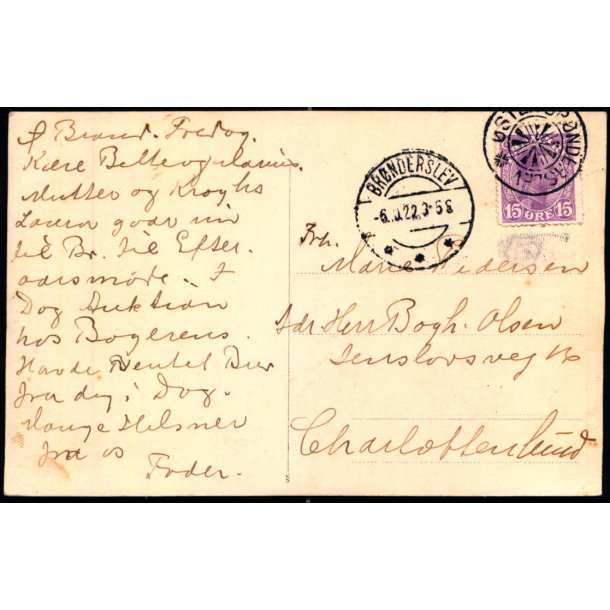 Brønd. Fredag.
Kære Bette og Marius.
Mutter og Kroghs
Laura gaar nu
til Br. til Efter-
aarsmøde.
Dog Auktion
hos Bagerens.
Havde Ventet Brev
fra dig i Dag.
Mange Hilsner
fra os
Fader.
BRØNDERSLEV
ØSTER BRØNDERSLEV
15 ØRE 15
Frk.
Marie Pedersen
Adr Herr Bogh. Olsen
Jenslovsvej 16
Charlottenlund